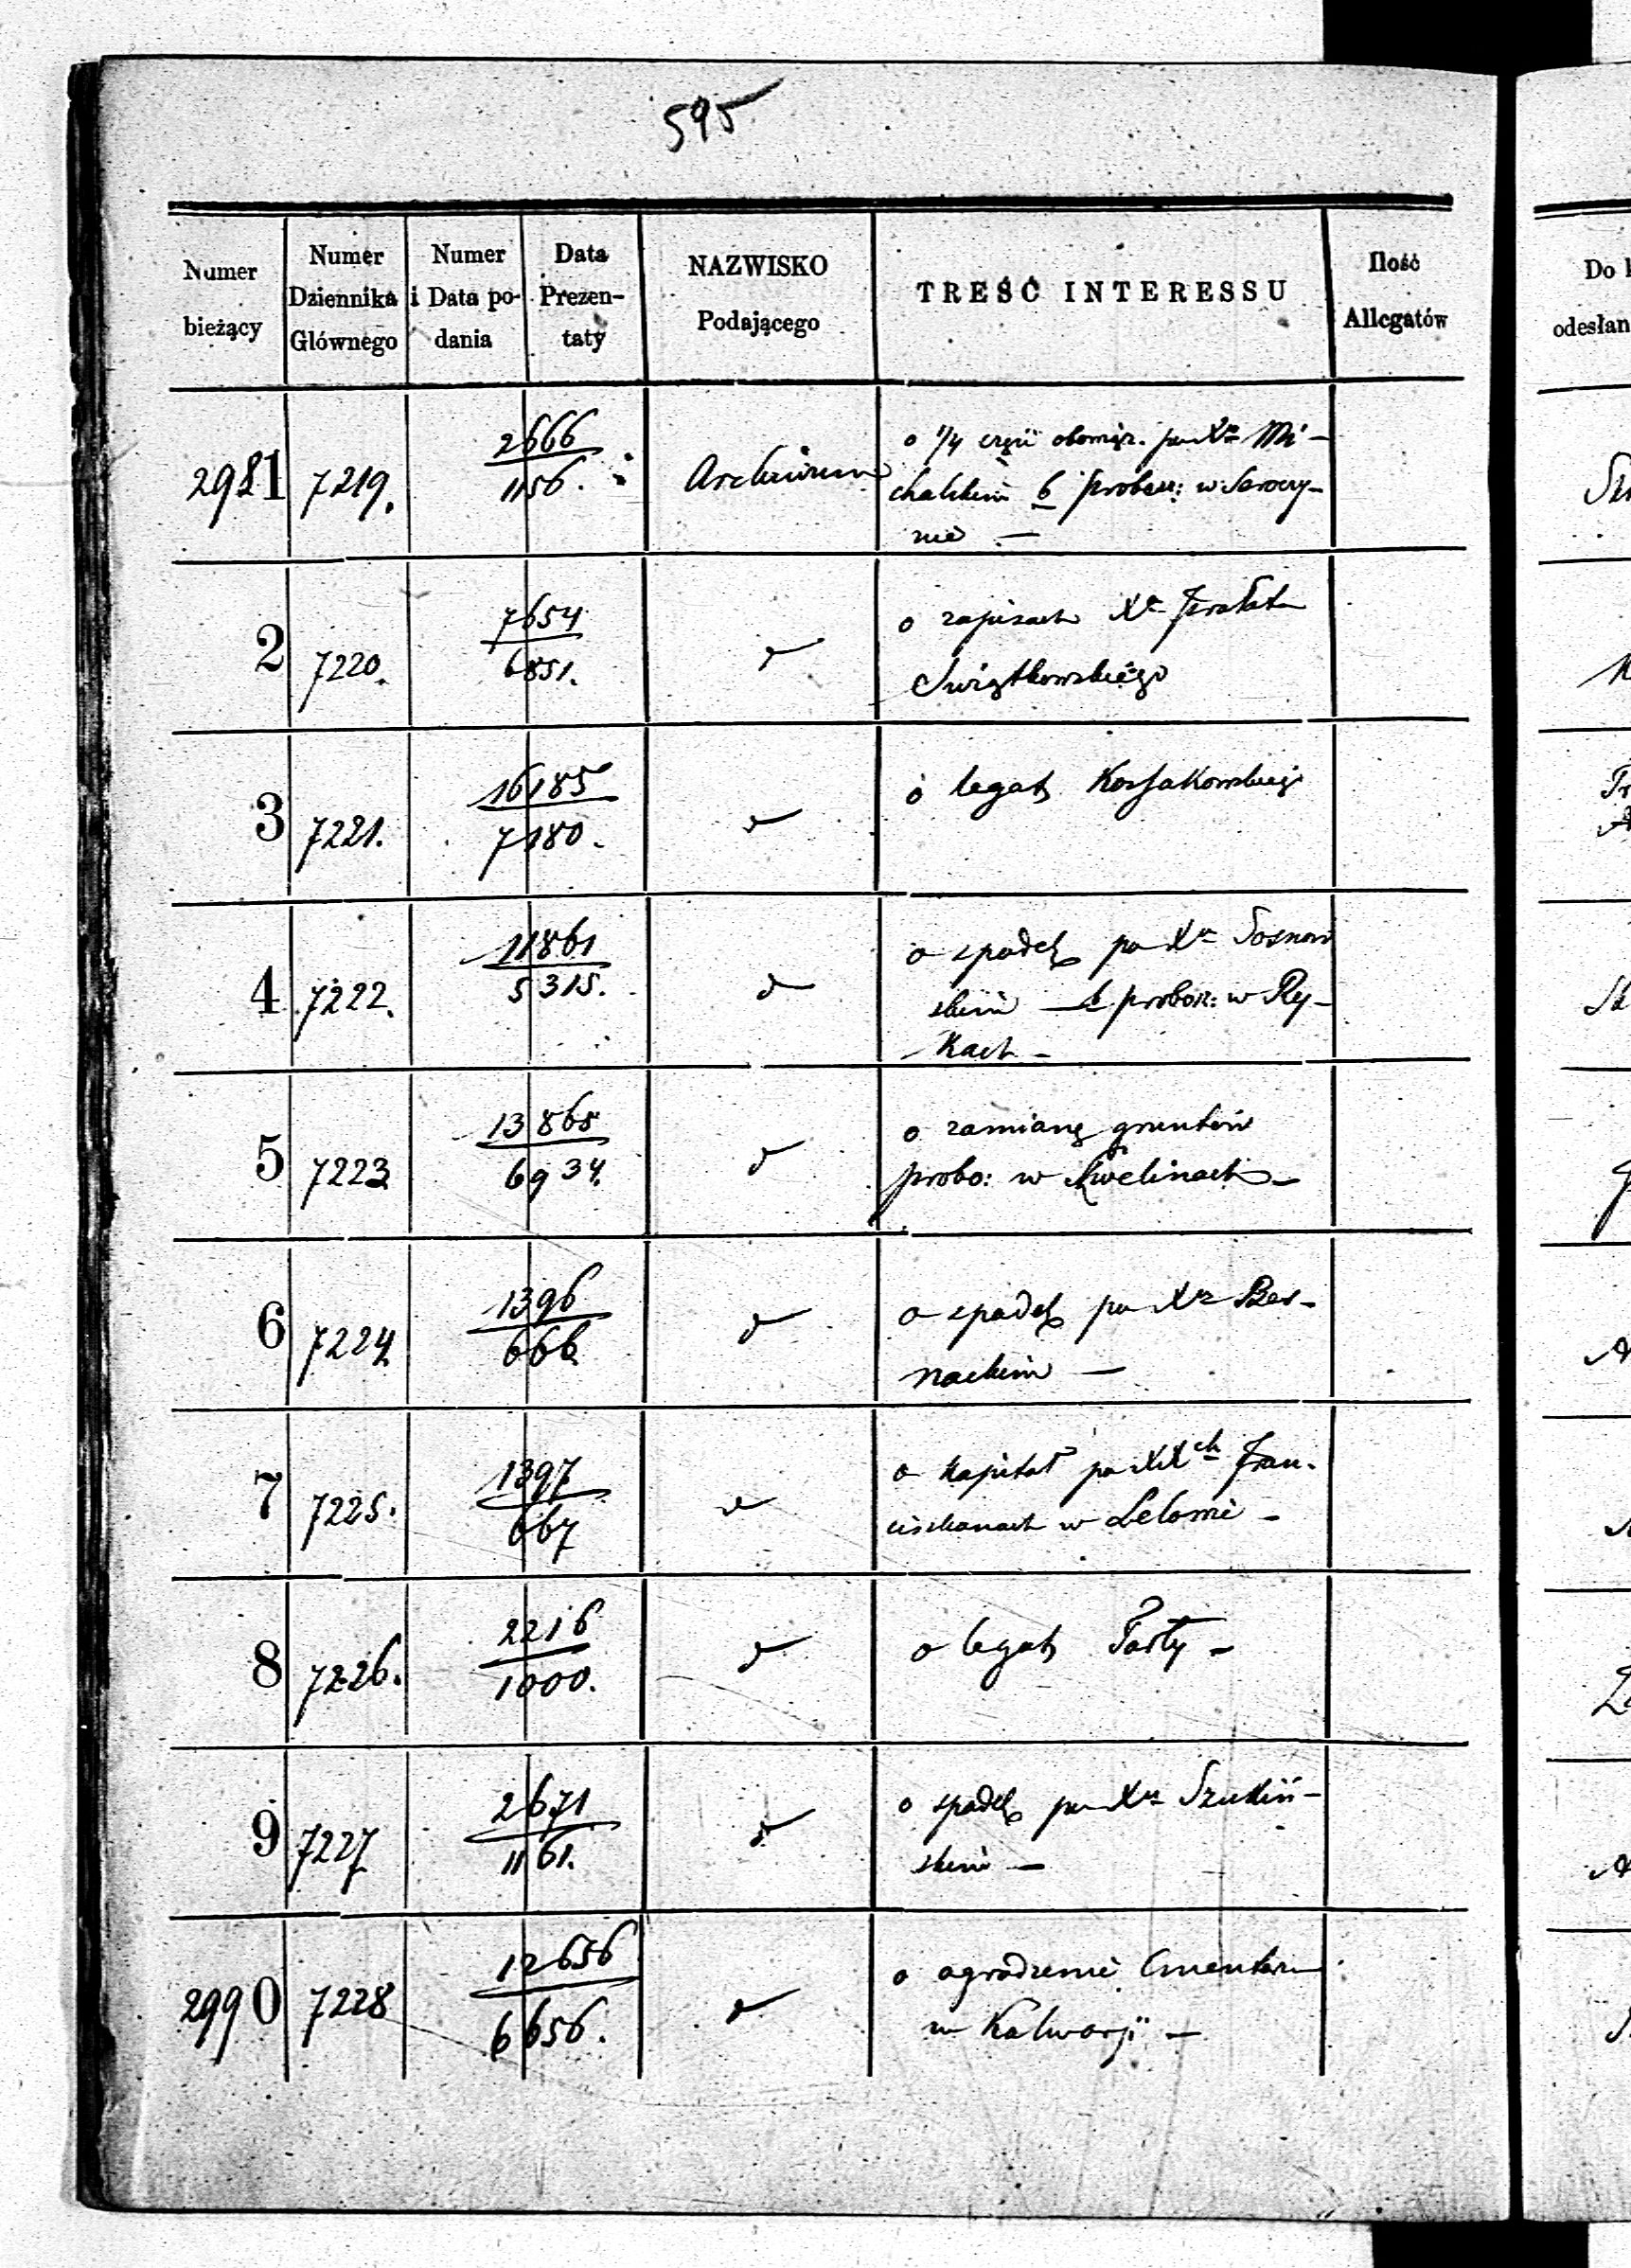 595
Numer bieżący
Numer Dziennika Głównego
Numer i Data podania
Data Prezentaty
NAZWISKO Podającego
TREŚĆ INTERESSU
Ilość Allegatów
2981 7219. 2666 / 1156. Archiwum o 1/4 części obowiąz. po Xu Mi-
chalskim b probosz: w Serocy-
nie —
2 7220. 7654 / 6851. d o zapisach Xa Prałata
Świątkowskiego
3 7221. 16185 / 7180. d o legat Kossakowskiej
4 7222. 11861 / 5315. d o spadek po Xu Sosnow
skim b probosz: w Ry-
kach —
5 7223 13865 / 6934. d o zamianę gruntów
probo: w
6 7224 1396 / 666 d o spadek po Xu Ber-
nackim —
7 7225. 1397 / 667 d o kapitał po XXch Fran-
ciszkanach w
8 7226. 2216 / 1000. d o legat Tarły —
9 7227 2671 / 1161. d o spadek po Xu
skim —
2990 7228 12656 / 6656. d o ogrodzenie Cmentarza
w Kalwarji —
Do
odesłan